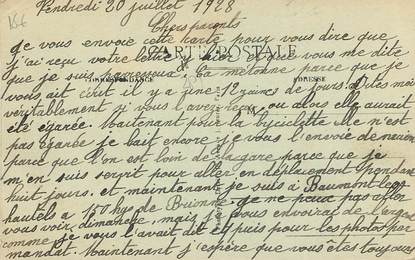 Vendredi 20 juillet 1928
Chers parents
CARTE POSTALE
CORRESPONDANCE
ADRESSE
Je vous envoie cette carte pour vous dire que
j'ai reçu votre lettre hier et que vous me dite
que je suis paresseux. Ca m'etonne parce que je
vous ait ecrit il y a une 12zaines de jours. dites moi
veritablement si vous l'avez reçu ou alors elle aurait
été égarée. Maitenant pour la biciclette elle n'est
pas égarée je l'ait encore je vous l'envoie de
parce que l'on est loin de la gare parce que je
m'en suis servit pour aller en déplacement pendant
huit jours. et maintenant je suis à Beaumont les
hautels a kgs de je ne peux pas aller
vous voir dimanche, mais je vous envoirai de l'argent
comme je vous l'avait dit et puis pour les photos par
mandat. Maintenant j'espère que vous êtes toujours